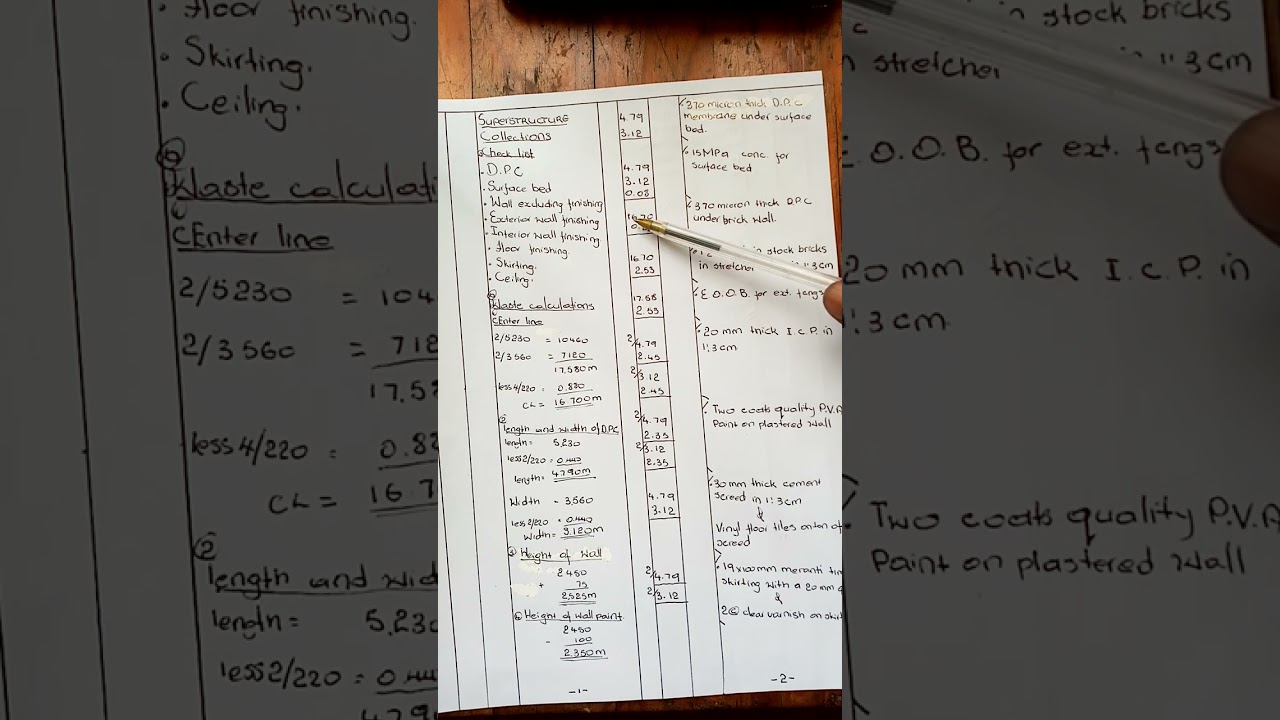 SUPERSTRUCTURE
Collections
Check list
. D.P.C
. Surface bed
. Wall excluding finishing
. Exterior wall finishing
. Interior wall finishing
. floor finishing.
. Skirting.
. Ceiling.
Waste calculations
CEnter line
2/5230 = 10460
2/3560 = 7120
17.580m
less 4/220 = 0.880
CL = 16.700m
②
length and width of D.P.C
length = 5,230
less 2/220 = 0.440
length = 4.790m
Width = 3,560
less 2/220 = 0.440
width = 3.120m
Height of wall
2450
+ 75
2.525m
Height of wall paint
2450
- 100
2.350m
-1-
4.79
3.12
4.79
3.12
0.08
16.70
16.70
2.53
17.58
2.53
2/4.79
2.45
2/3.12
2.45
2/4.79
2.35
2/3.12
2.35
4.79
3.12
2/4.79
2/3.12
370 micron thick D.P.C
membrane under surface
bed.
15MPa conc. for
surface bed
370 micron thick D.P.C
under brick wall.
in stock bricks
in stretcher 1:3cm
E.O.O.B. for ext. fangs
20 mm thick I.C.P. in
1:3cm
Two coats quality P.V.A
Paint on plastered wall
30 mm thick cement
screed in 1:3cm
&
Vinyl floor tiles on
screed
19x100mm meranti
skirting with a 20mm
&
2© clear varnish on
-2-
floor finishing.
. Skirting.
. Ceiling.
Waste calculati
CEnter line
2/5230 = 104
2/3560 = 712
17.5
less 4/220 = 0.88
CL = 16.7
②
length and wid
length = 5,230
less 2/220 = 0.440
4790
in stock bricks
n stretcher 1:3cm
E.O.O.B. for ext. fangs
20 mm thick I.C.P. in
1:3cm
Two coats quality P.V.A
Paint on plastered wall